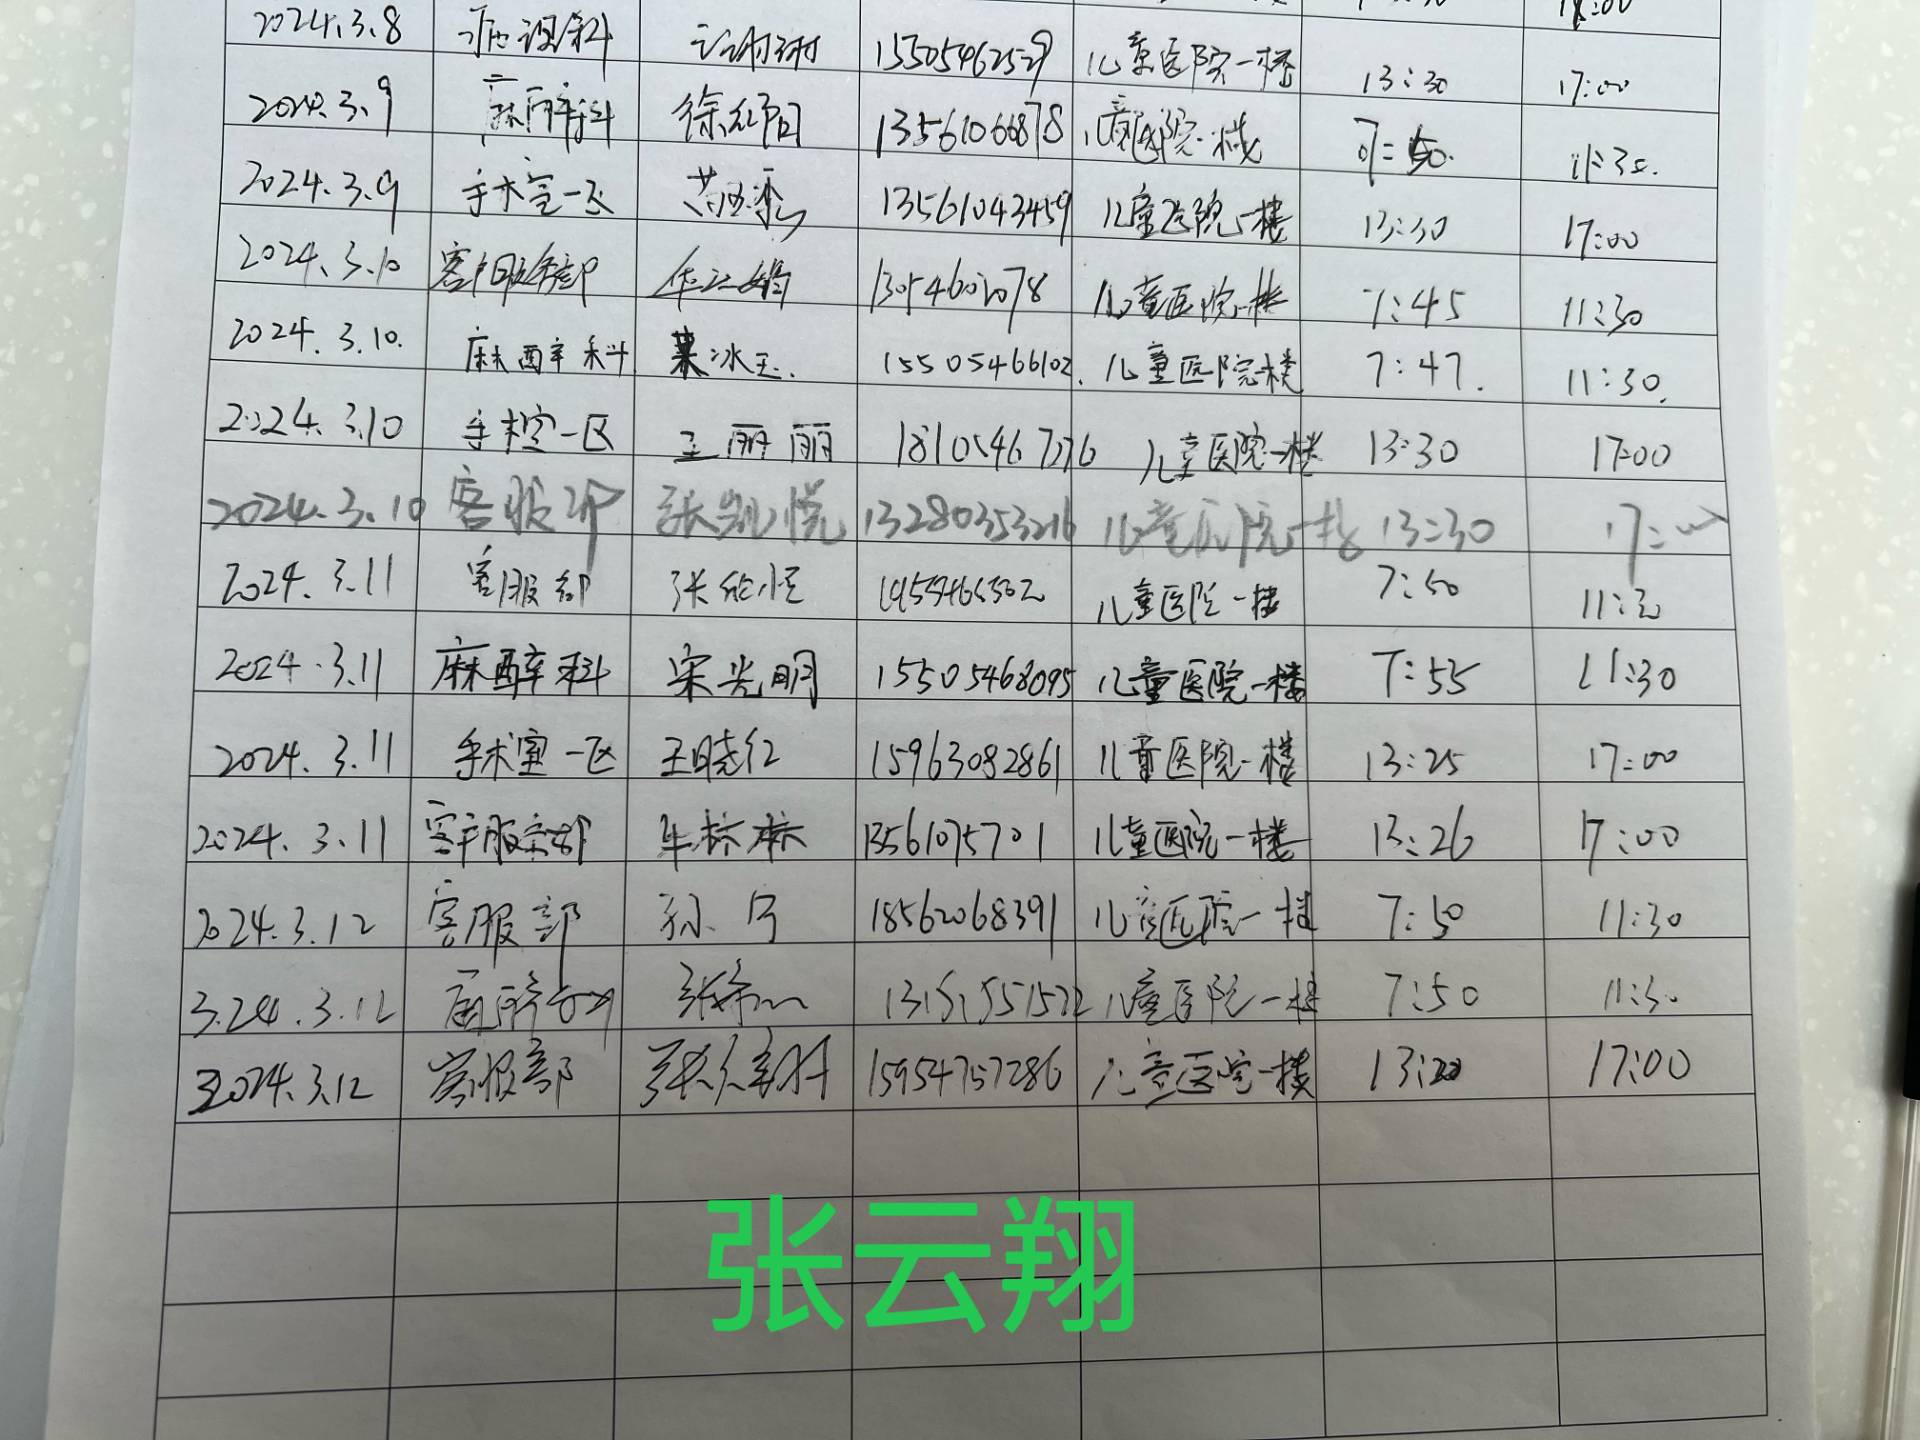 18:00
2024.3.8 15505462529 儿童医院一楼 13:30 17:00
2024.3.9 麻醉科 徐红阳 13561066878 儿童医院一楼 7:50 11:30.
2024.3.9 手术室一区 13561043459 儿童医院一楼 13:30 17:00
2024.3.10 客户服务部 儿童医院一楼 7:45 11:30
2024.3.10. 麻醉科 冰玉. 15505466102. 儿童医院一楼 7:47. 11:30.
2024.3.10 手术室一区 王丽丽 儿童医院一楼 13:30 17:00
2024.3.10 客服部 张凯悦 13280353216 儿童医院一楼 13:30 17:00
2024.3.11 客服部 儿童医院一楼 7:50 11:30
2024.3.11 麻醉科 宋光明 15505468095 儿童医院一楼 7:55 11:30
2024.3.11 手术室一区 王晓红 15963082861 儿童医院一楼 13:25 17:00
2024.3.11 客户服务部 牛标标 13561075701 儿童医院一楼 13:26 17:00
2024.3.12 客服部 孙宁 18562068391 儿童医院一楼 7:50 11:30
3.24.3.12 麻醉科 儿童医院一楼 7:50 11:30
2024.3.12 客服部 15954757286 儿童医院一楼 13:20 17:00
张云翔